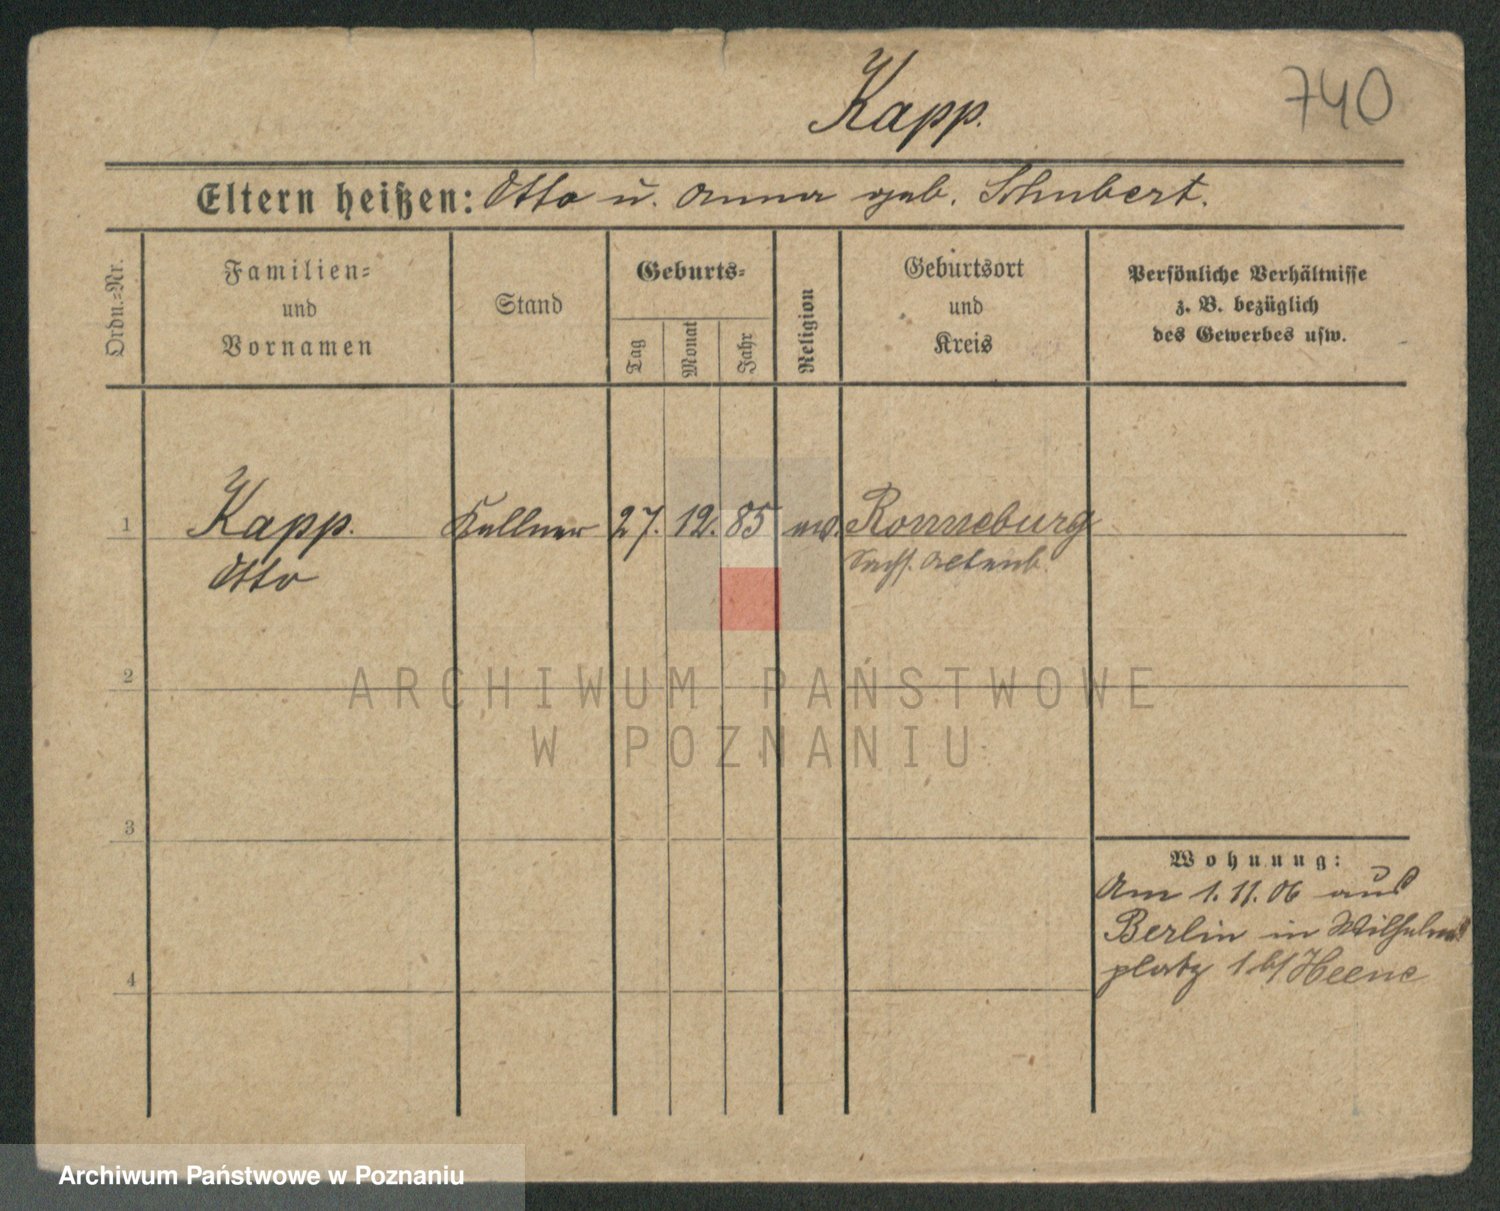 Kapp.
740
Eltern heißen: Otto u. Anna geb. Schubert.
Ordn.=Nr.
Familien=
und
Vornamen
Stand
Geburts=
Tag
Monat
Jahr
Religion
Geburtsort
und
Kreis
Persönliche Verhältnisse
z. B. bezüglich
des Gewerbes usw.
1 Kapp. Kellner 27. 12. 85 ev. Ronneburg
Otto Sachs. Altenb.
ARCHIWUM PAŃSTWOWE
W POZNANIU
2
3
4
Wohnung:
Am 1.11.06 aus
Berlin in Wilhelms
platz 1 b/ Heene
Archiwum Państwowe w Poznaniu